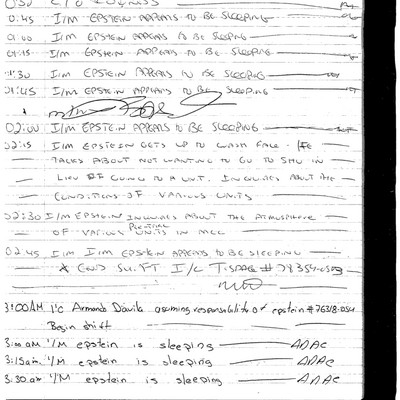 00:45 I/M EPSTEIN APPEARS TO BE SLEEPING
01:00 I/M EPSTEIN APPEARS TO BE SLEEPING
01:15 I/M EPSTEIN APPEARS TO BE SLEEPING
01:30 I/M EPSTEIN APPEARS TO BE SLEEPING
01:45 I/M EPSTEIN APPEARS TO BE SLEEPING
02:00 I/M EPSTEIN APPEARS TO BE SLEEPING
02:15 I/M EPSTEIN GETS UP TO WASH FACE. HE
TALKS ABOUT NOT WANTING TO GO TO SHU IN
LIEU OF GOING TO A UNIT. INQUIRES ABOUT THE
CONDITIONS OF VARIOUS UNITS
02:30 I/M EPSTEIN INQUIRES ABOUT THE ATMOSPHERE
OF VARIOUS UNITS IN MCC
02:45 I/M EPSTEIN APPEARS TO BE SLEEPING
* END SHIFT I/C
3:00AM I/C Armando Davila assuming responsability of epstein #76318-054
Begin shift
3:00 AM I/M epstein is sleeping
3:15 am I/M epstein is sleeping
3:30 am I/M epstein is sleeping